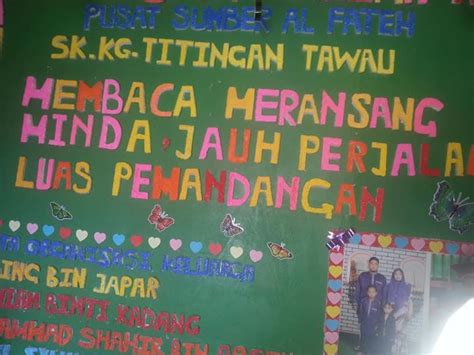 PUSAT SUMBER AL FATEH
SK.KG.TITINGAN TAWAU
MEMBACA MERANSANG
MINDA, JAUH PERJALA
LUAS PEMANDANGAN
ORGANISASI KELUARGA
ING BIN JAPAR
BINTI KADANG
AMMAD SHAHIR BIN